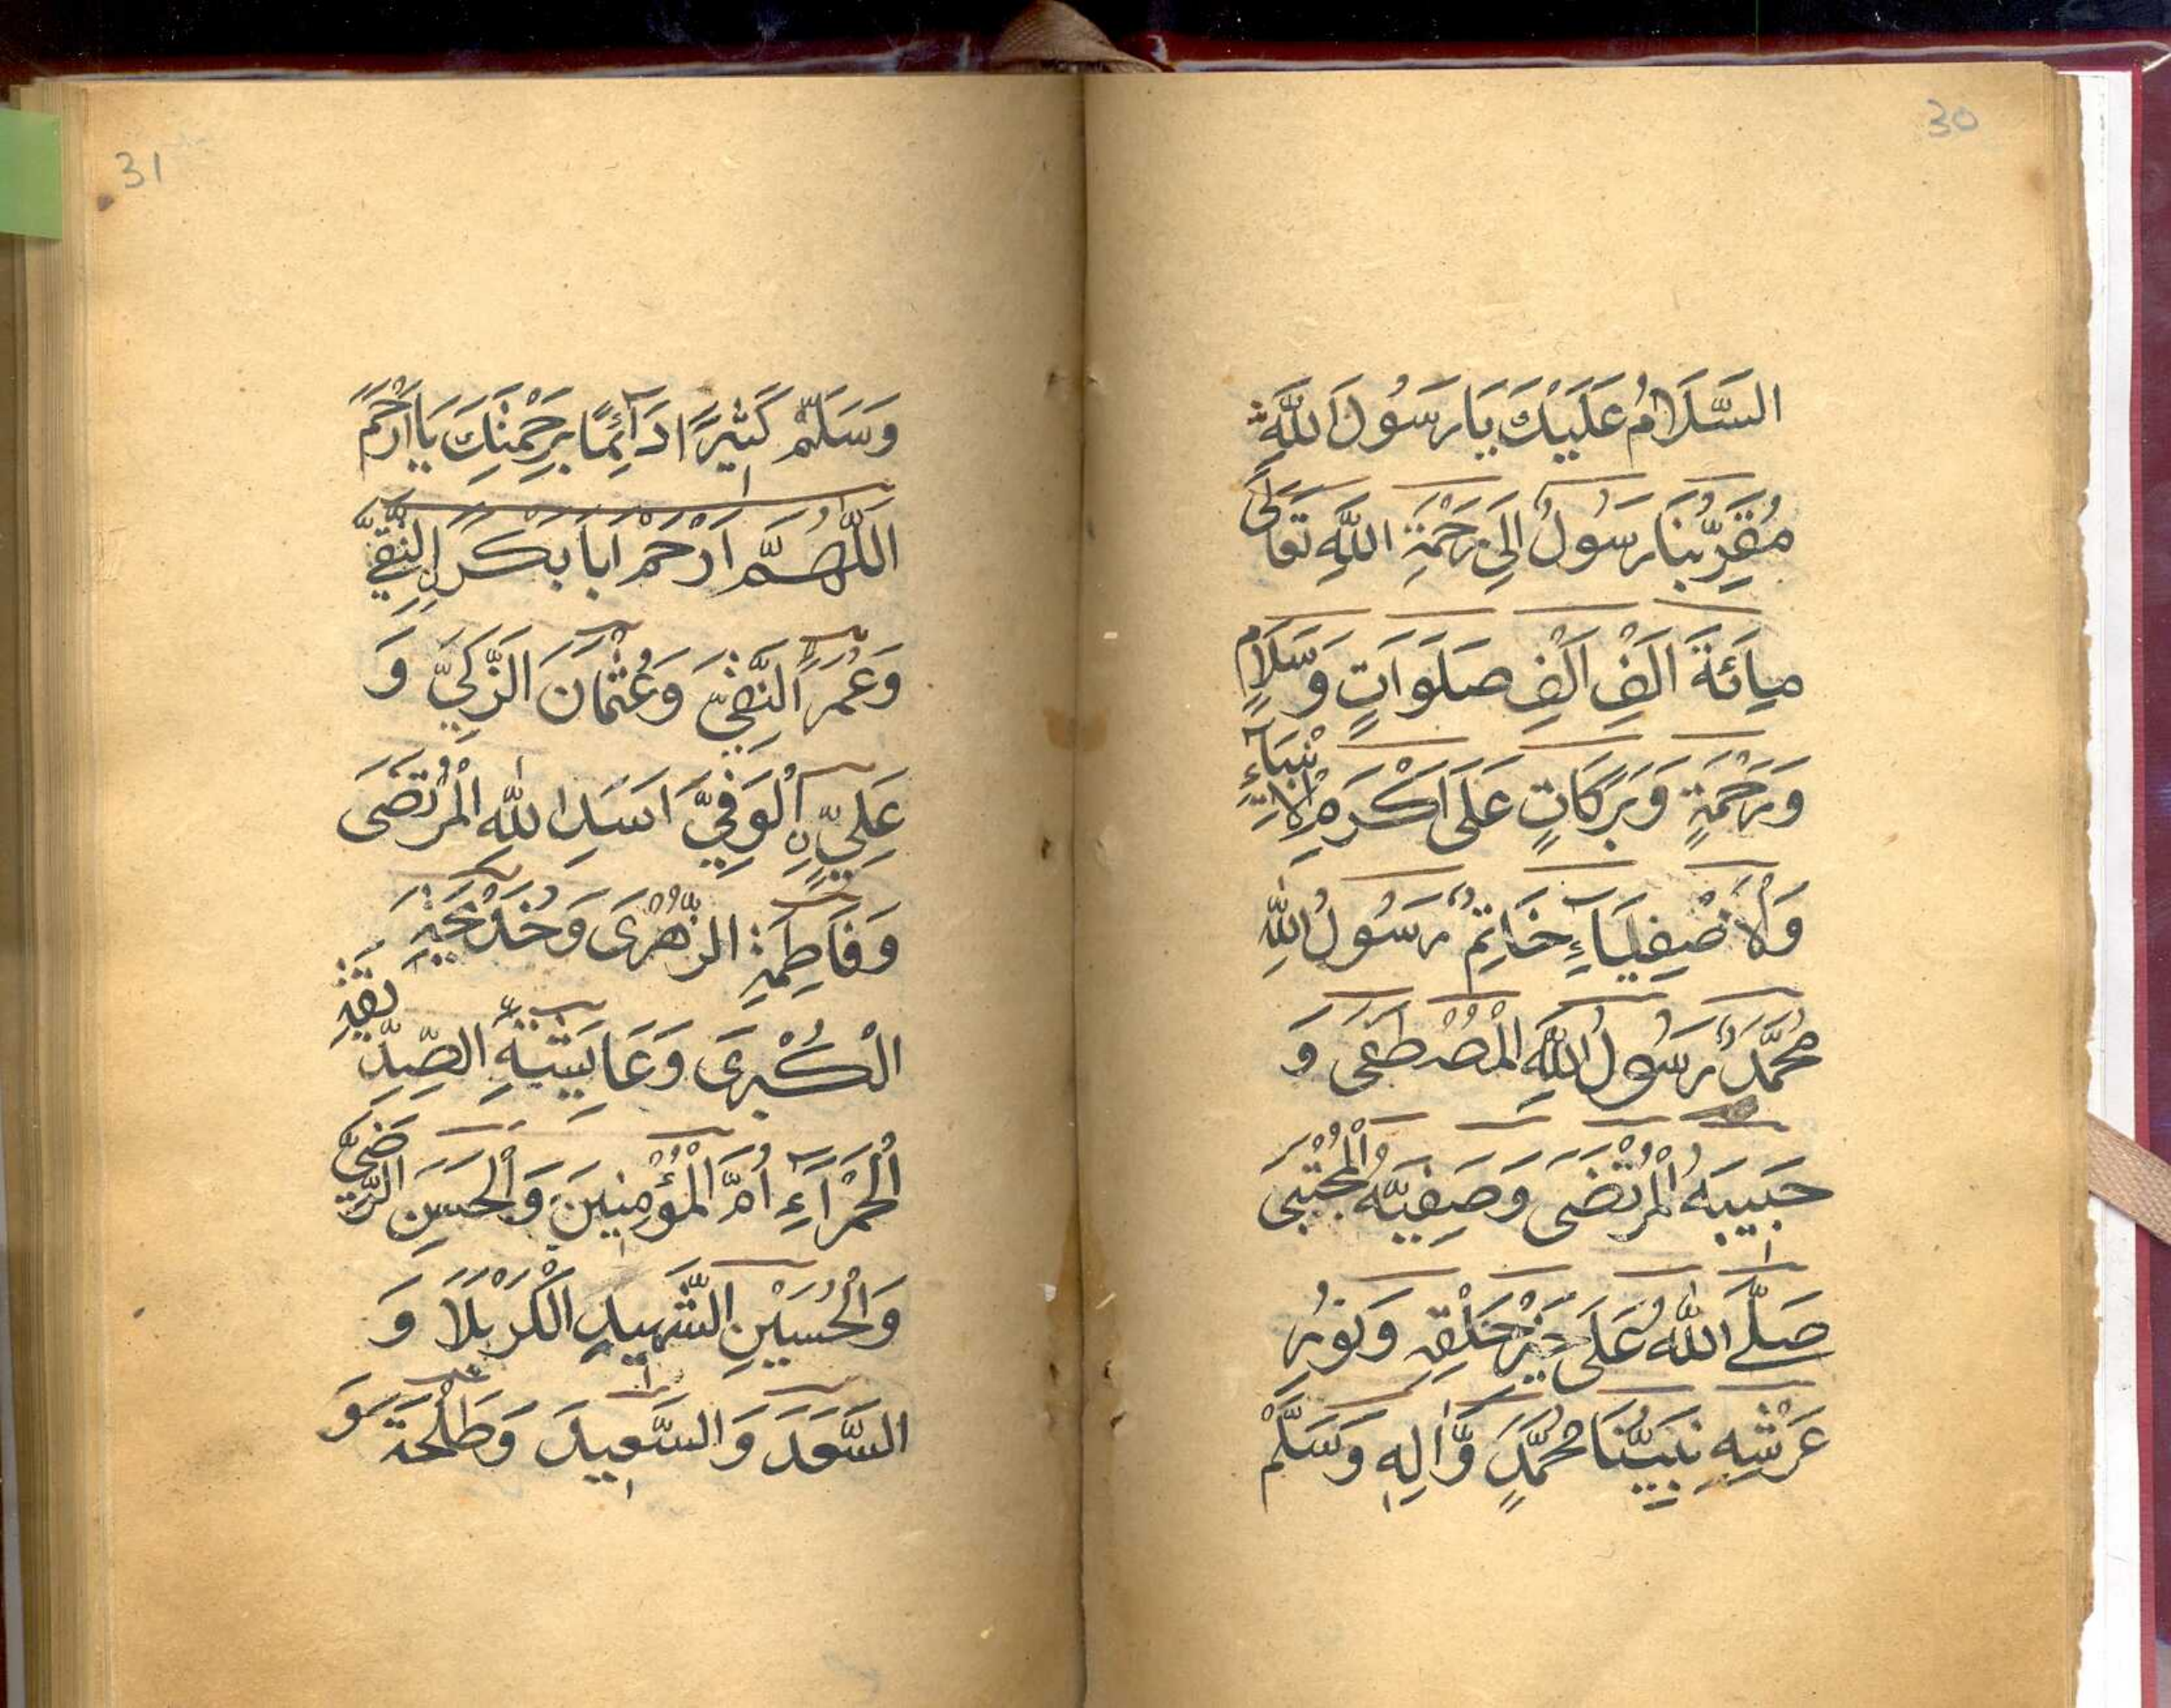 30
السَّلَامُ عَلَيْكَ يَا رَسُولَ اللَّهِ
مُقَرِّبُنَا رَسُولُ اِلَى رَحْمَةِ اللَّهِ تَعَالَى
مِائَةَ اَلْفِ اَلْفِ صَلَوَاتٍ وَسَلَامٍ
وَرَحْمَةٍ وَبَرَكَاتٍ عَلَى اَكْرَمِ الْاَنْبِيَآءِ
وَالْاَصْفِيَآءِ خَاتِمُ رَسُولُ اللّٰهِ
مُحَمَّدٌ رَسُولُ اللَّهِ الْمُصْطَفَى وَ
حَبِيبَهُ الْمُرْتَضَى وَصَفِيَّهُ الْمُجْتَبَى
صَلَّى اللّٰهُ عَلَى خَيْرِ خَلْقِهِ وَنُورِ
عَرْشِهِ نَبِيِّنَا مُحَمَّدٍ وَّاٰلِهِ وَسَلَّمْ
31
وَسَلِّمْ كَثِيْرًا دَآئِمًا بِرَحْمَتِكَ يَا اَرْحَمَ
اَللّٰهُمَّ ارْحَمْ اَبَا بَكْرِ التَّقِيَّ
وَعُمَرَ النَّقِيَّ وَعُثْمَانَ الزَّكِيَّ وَ
عَلِيٍّ الْوَفِيَّ اَسَدِ اللّٰهِ الْمُرْتَضَى
وَفَاطِمَةِ الزُّهْرَى وَخَدِيجَةِ
الْكُبْرَى وَعَايِشَةِ الصِّدِّيقَةِ
الْحَمْرَآءِ اُمَّ الْمُؤْمِنِينَ وَالْحَسَنِ الرَّضِيَّ
وَالْحُسَيْنِ الشَّهِيدِ الْكَرْبَلَا وَ
السَّعَدَ وَالسَّعِيدَ وَطَلْحَةَ وَ